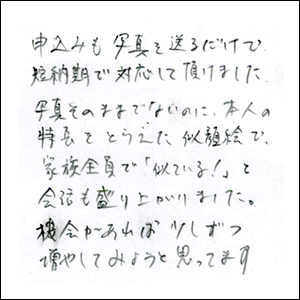 申込みも写真を送るだけで、
短納期で対応して頂けました。
写真そのままでないのに、本人の
特長をとらえた似顔絵で、
家族全員で「似ている!」と
会話も盛り上がりました。
機会があれば少しずつ
増やしてみようと思ってます